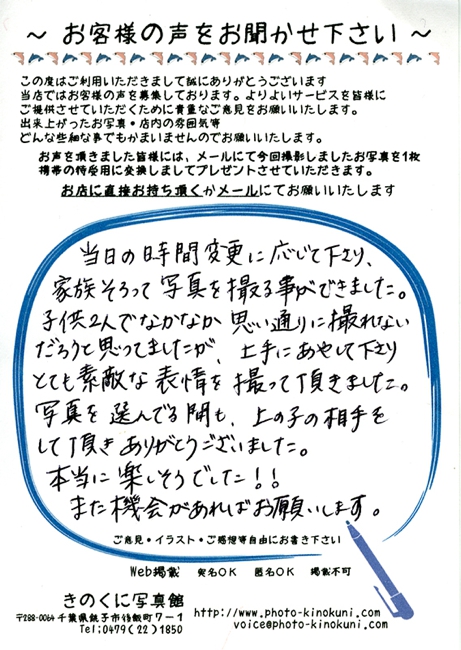 ～ お客様の声をお聞かせ下さい ～
この度はご利用いただきまして誠にありがとうございます
当店ではお客様の声を募集しております。よりよいサービスを皆様に
ご提供させていただくために貴重なご意見をお願いいたします。
出来上がったお写真・店内の雰囲気等
どんな些細な事でもかまいませんのでお願いいたします。
お声を頂きました皆様には、メールにて今回撮影しましたお写真を1枚
携帯の待受用に変換しましてプレゼントさせていただきます。
お店に直接お持ち頂くかメールにてお願いいたします
当日の時間変更に応じて下さり、
家族そろって写真を撮る事ができました。
子供2人でなかなか思い通りに撮れない
だろうと思ってましたが、上手にあやして下さり
とても素敵な表情を撮って頂きました。
写真を選んでる間も、上の子の相手を
して頂きありがとうございました。
本当に楽しそうでした!!
また機会があればお願いします。
ご意見・イラスト・ご感想等自由にお書き下さい
Web掲載 実名OK 匿名OK 掲載不可
きのくに写真館
〒288-0064 千葉県銚子市後飯町7-1
Tel:0479(22)1850
http://www.photo-kinokuni.com/
voice@photo-kinokuni.com/